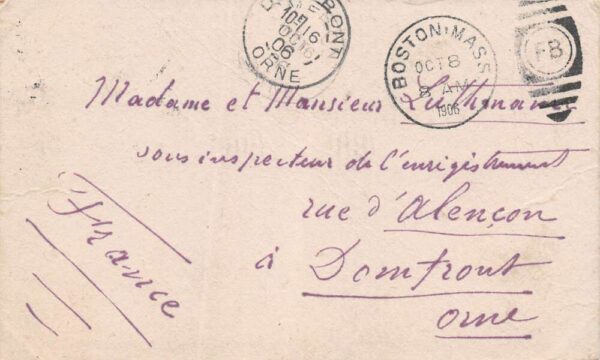 ORNE
06
BOSTON, MASS.
OCT 8
AM
1906
FB
Madame et Monsieur
sous inspecteur de l'enrégistrement
rue d'Alençon
à Domfront
Orne
France